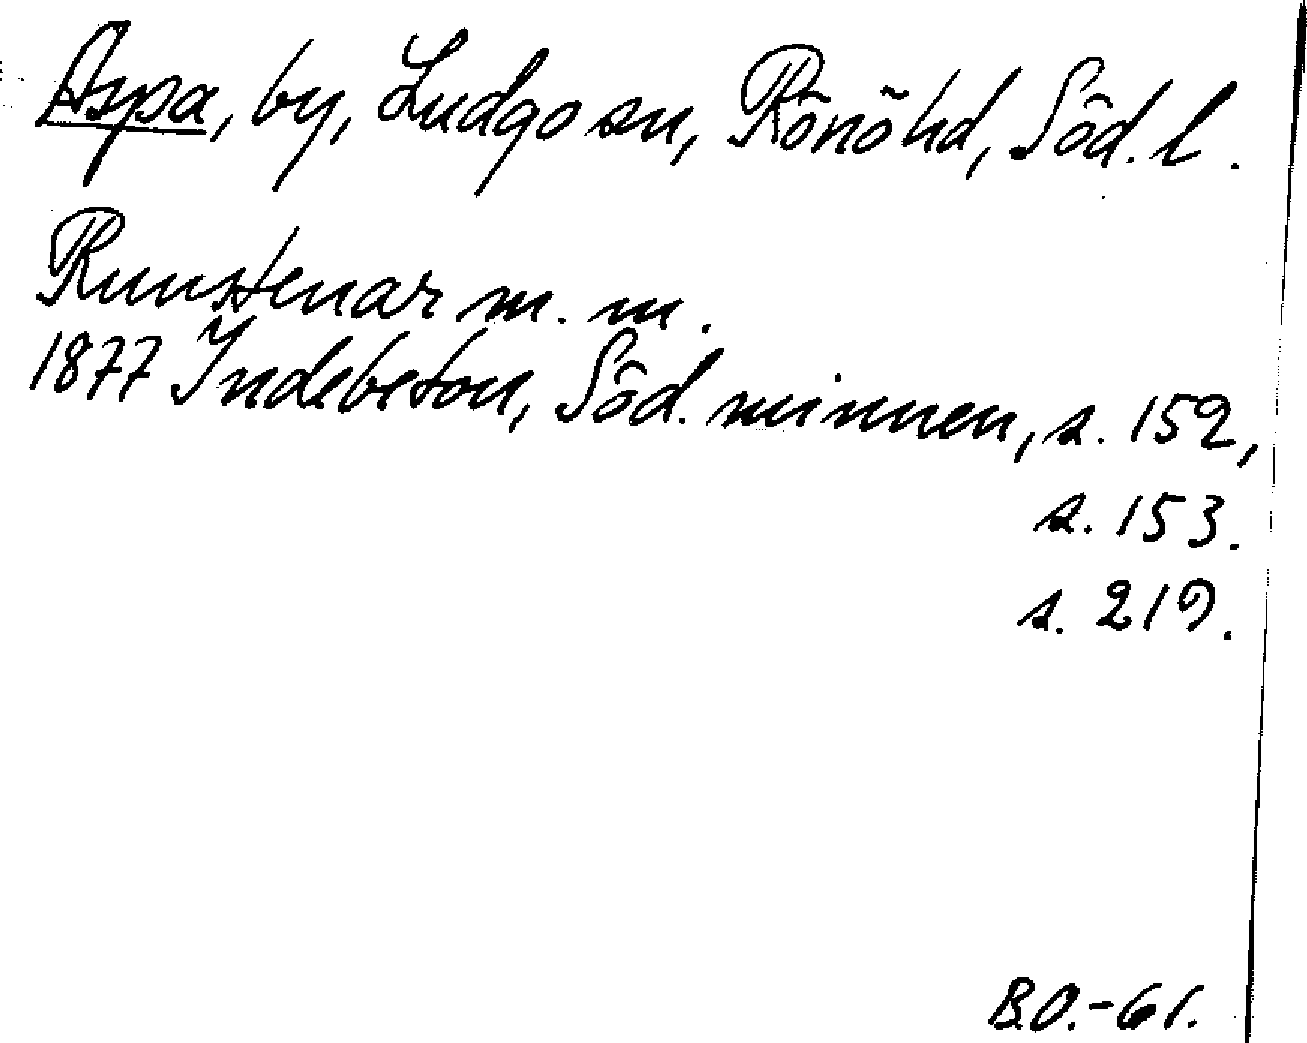 Aspa, by, Ludgo sn, Rönö hd, Söd. l.
Runstenar m. m.
1877 Indebetou, Söd. minnen, s. 152,
s. 153.
s. 219.
B.O.-61.